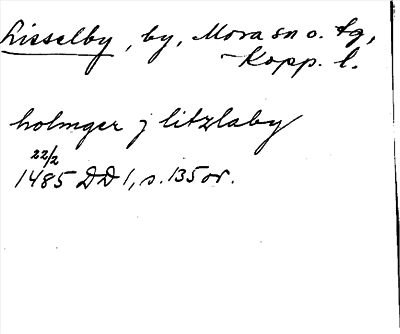 Lisselby, by, Mora sn o. tg,
Kopp. l.
holmger j litzlaby
22/2
1485 DD 1, s. 135 or.